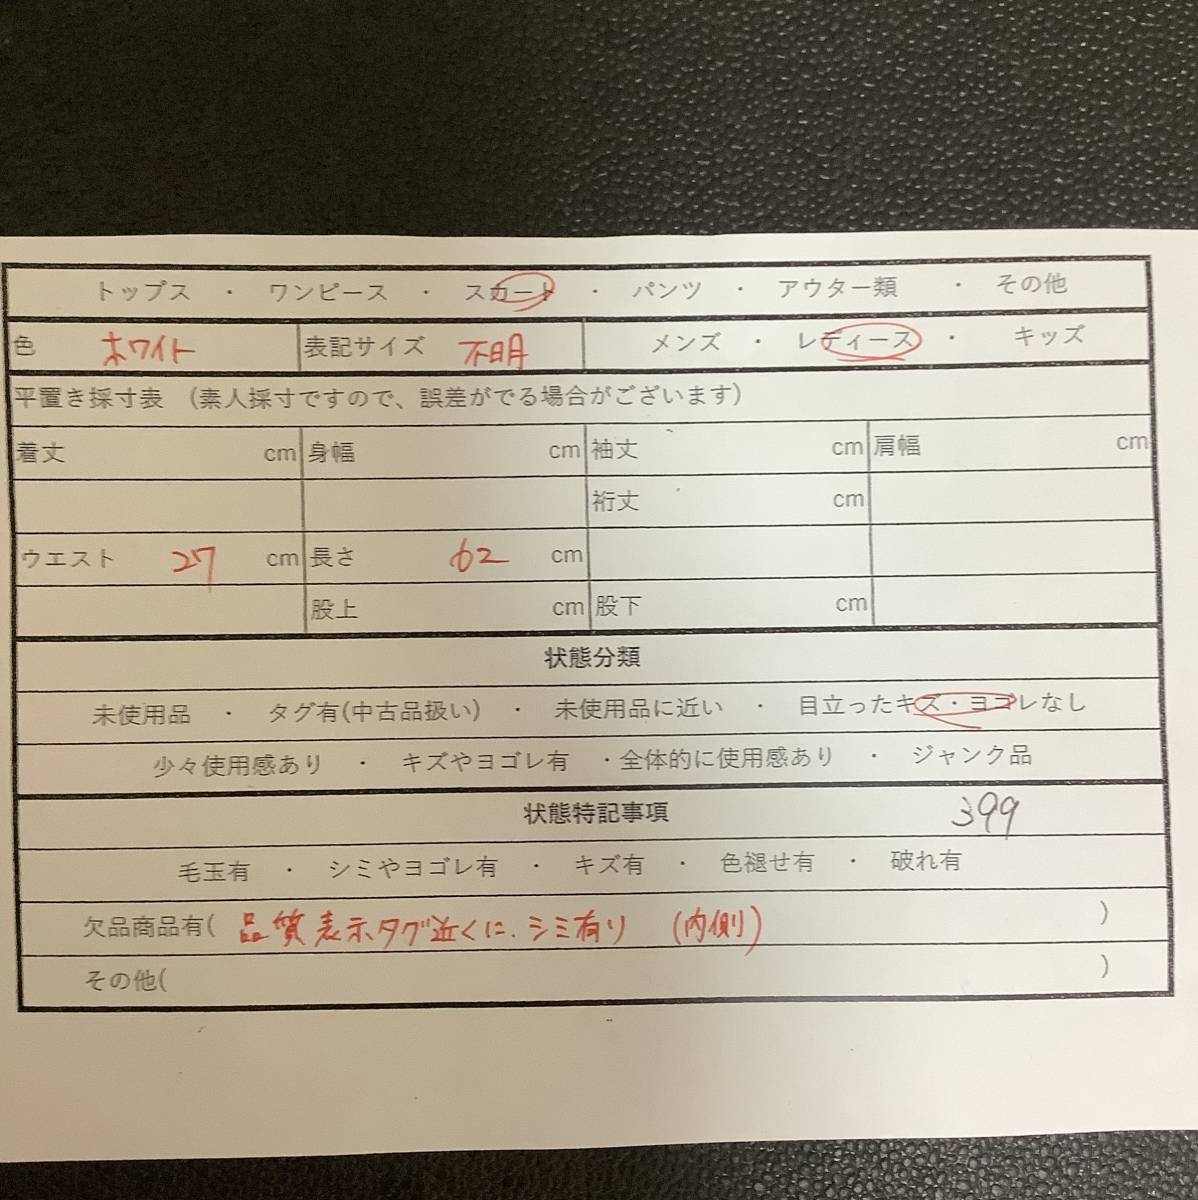 トップス ・ ワンピース ・ スカート ・ パンツ ・ アウター類 ・ その他
色 ホワイト 表記サイズ 不明 メンズ ・ レディース ・ キッズ
平置き採寸表 (素人採寸ですので、誤差がでる場合がございます)
着丈 cm 身幅 cm 袖丈 cm 肩幅 cm
裄丈 cm
ウエスト 27 cm 長さ 62 cm
股上 cm 股下 cm
状態分類
未使用品 ・ タグ有(中古品扱い) ・ 未使用品に近い ・ 目立ったキズ・ヨゴレなし
少々使用感あり ・ キズやヨゴレ有 ・全体的に使用感あり ・ ジャンク品
状態特記事項 399
毛玉有 ・ シミやヨゴレ有 ・ キズ有 ・ 色褪せ有 ・ 破れ有
欠品商品有( 品質表示タグ近くに、シミ有り (内側) )
その他( )